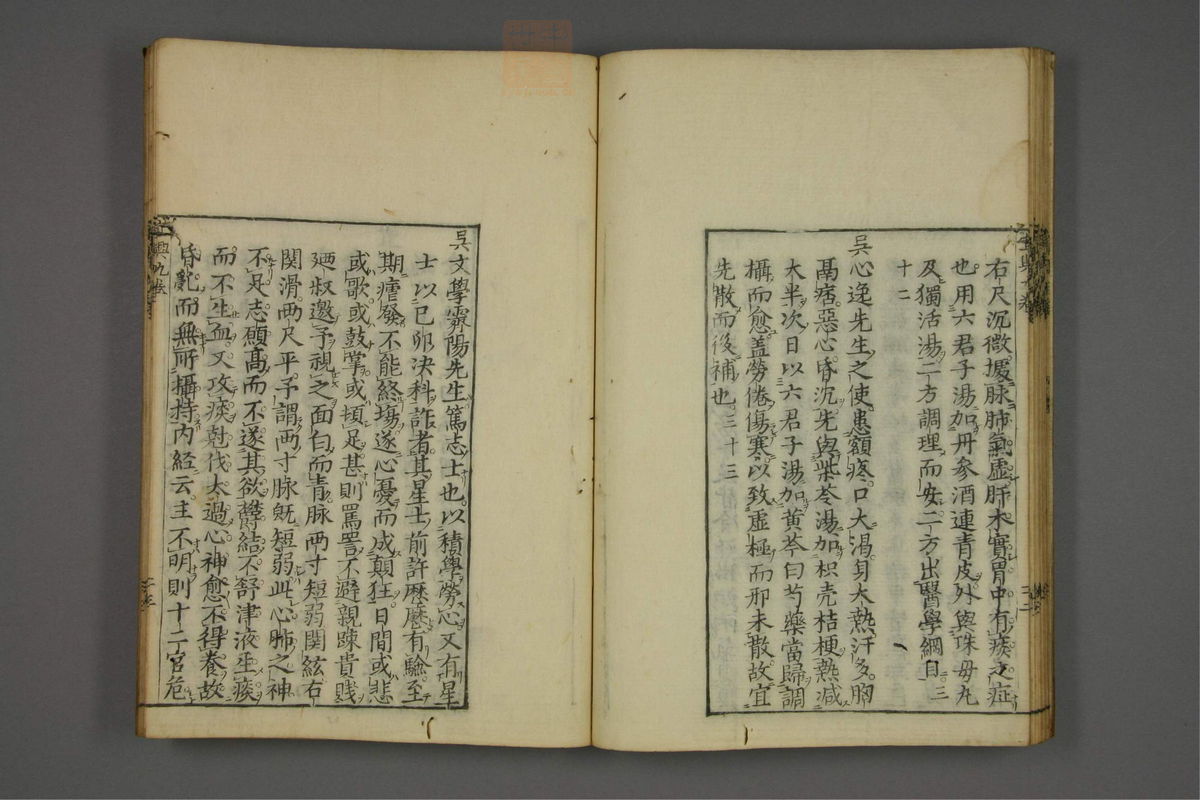 右尺沉微据脉肺氣虛肝木實胃中有痰之症
也用六君子湯加丹参酒連青皮外與珠母丸
及獨活湯二方調理而安二方出醫學綱目三
十二
吳心逸先生之使患額疼口大渴身大熱汗多胸
鬲痞惡心昏沉先與柴苓湯加枳壳桔梗熱減
大半次日以六君子湯加黄芩白芍藥當歸調
攝而愈盖勞倦傷寒以致虛極而邪未散故宜
先散而後補也三十三
吳文學霽陽先生篤志士也以積學勞心又有星
士以己卯決科詐者其星士前許歷歷有驗至
期瘧發不能終塲遂心憂而成顛狂日間或悲
或歌或鼓掌或頓足甚則罵詈不避親踈貴賎
廼叔邀予視之面白而青脉兩寸短弱関絃右
関滑兩尺平予謂兩寸脉既短弱此心肺之神
不足志願髙而不遂其欲欝結不舒津液生痰
而不生血又攻痰尅伐太過心神愈不得養故
昏亂而無所攝持内経云主不明則十二官危